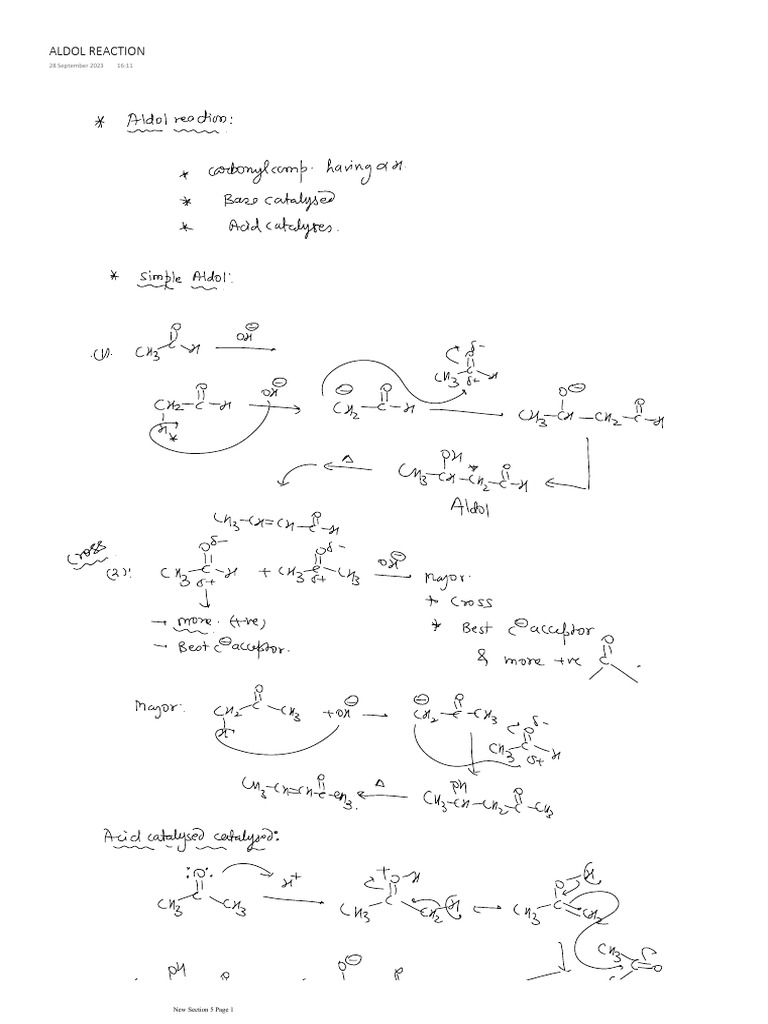 ALDOL REACTION
28 September 2023 16:11
* Aldol reaction:
* carbonyl comp. having α H.
* Base catalysed
* Acid catalyses.
* Simple Aldol:
(1). CH3 C O H OH⊖
CH2-C-H O H OH⊖ ⊖CH2-C-H O CH3 C O H δ- δ+ CH3-CH-CH2-C-H O⊖ O
CH3-CH-CH2-C-H OH O * Δ
Aldol
CH3-CH=CH-C-H O
Cross
(2): CH3-C-H Oδ- δ+ + CH3-C-CH3 Oδ- δ+ OH⊖ Major.
+ Cross
→ more (+ve)
* Best C⊖ acceptor
– Best C⊖ acceptor.
& more +ve C O
Major: CH2-C-CH3 O H + OH⊖ ⊖CH2-C-CH3 O
CH3 C O H δ- δ+
CH3-CH=CH-C-CH3. O Δ CH3-CH-CH2-C-CH3 OH O
Acid catalysed catalysed:
CH3 C CH3 :O: H+ CH3 C CH2 H +O-H CH3 C=CH2 O-H
CH3 C=O
OH O O⊖ O
New Section 5 Page 1